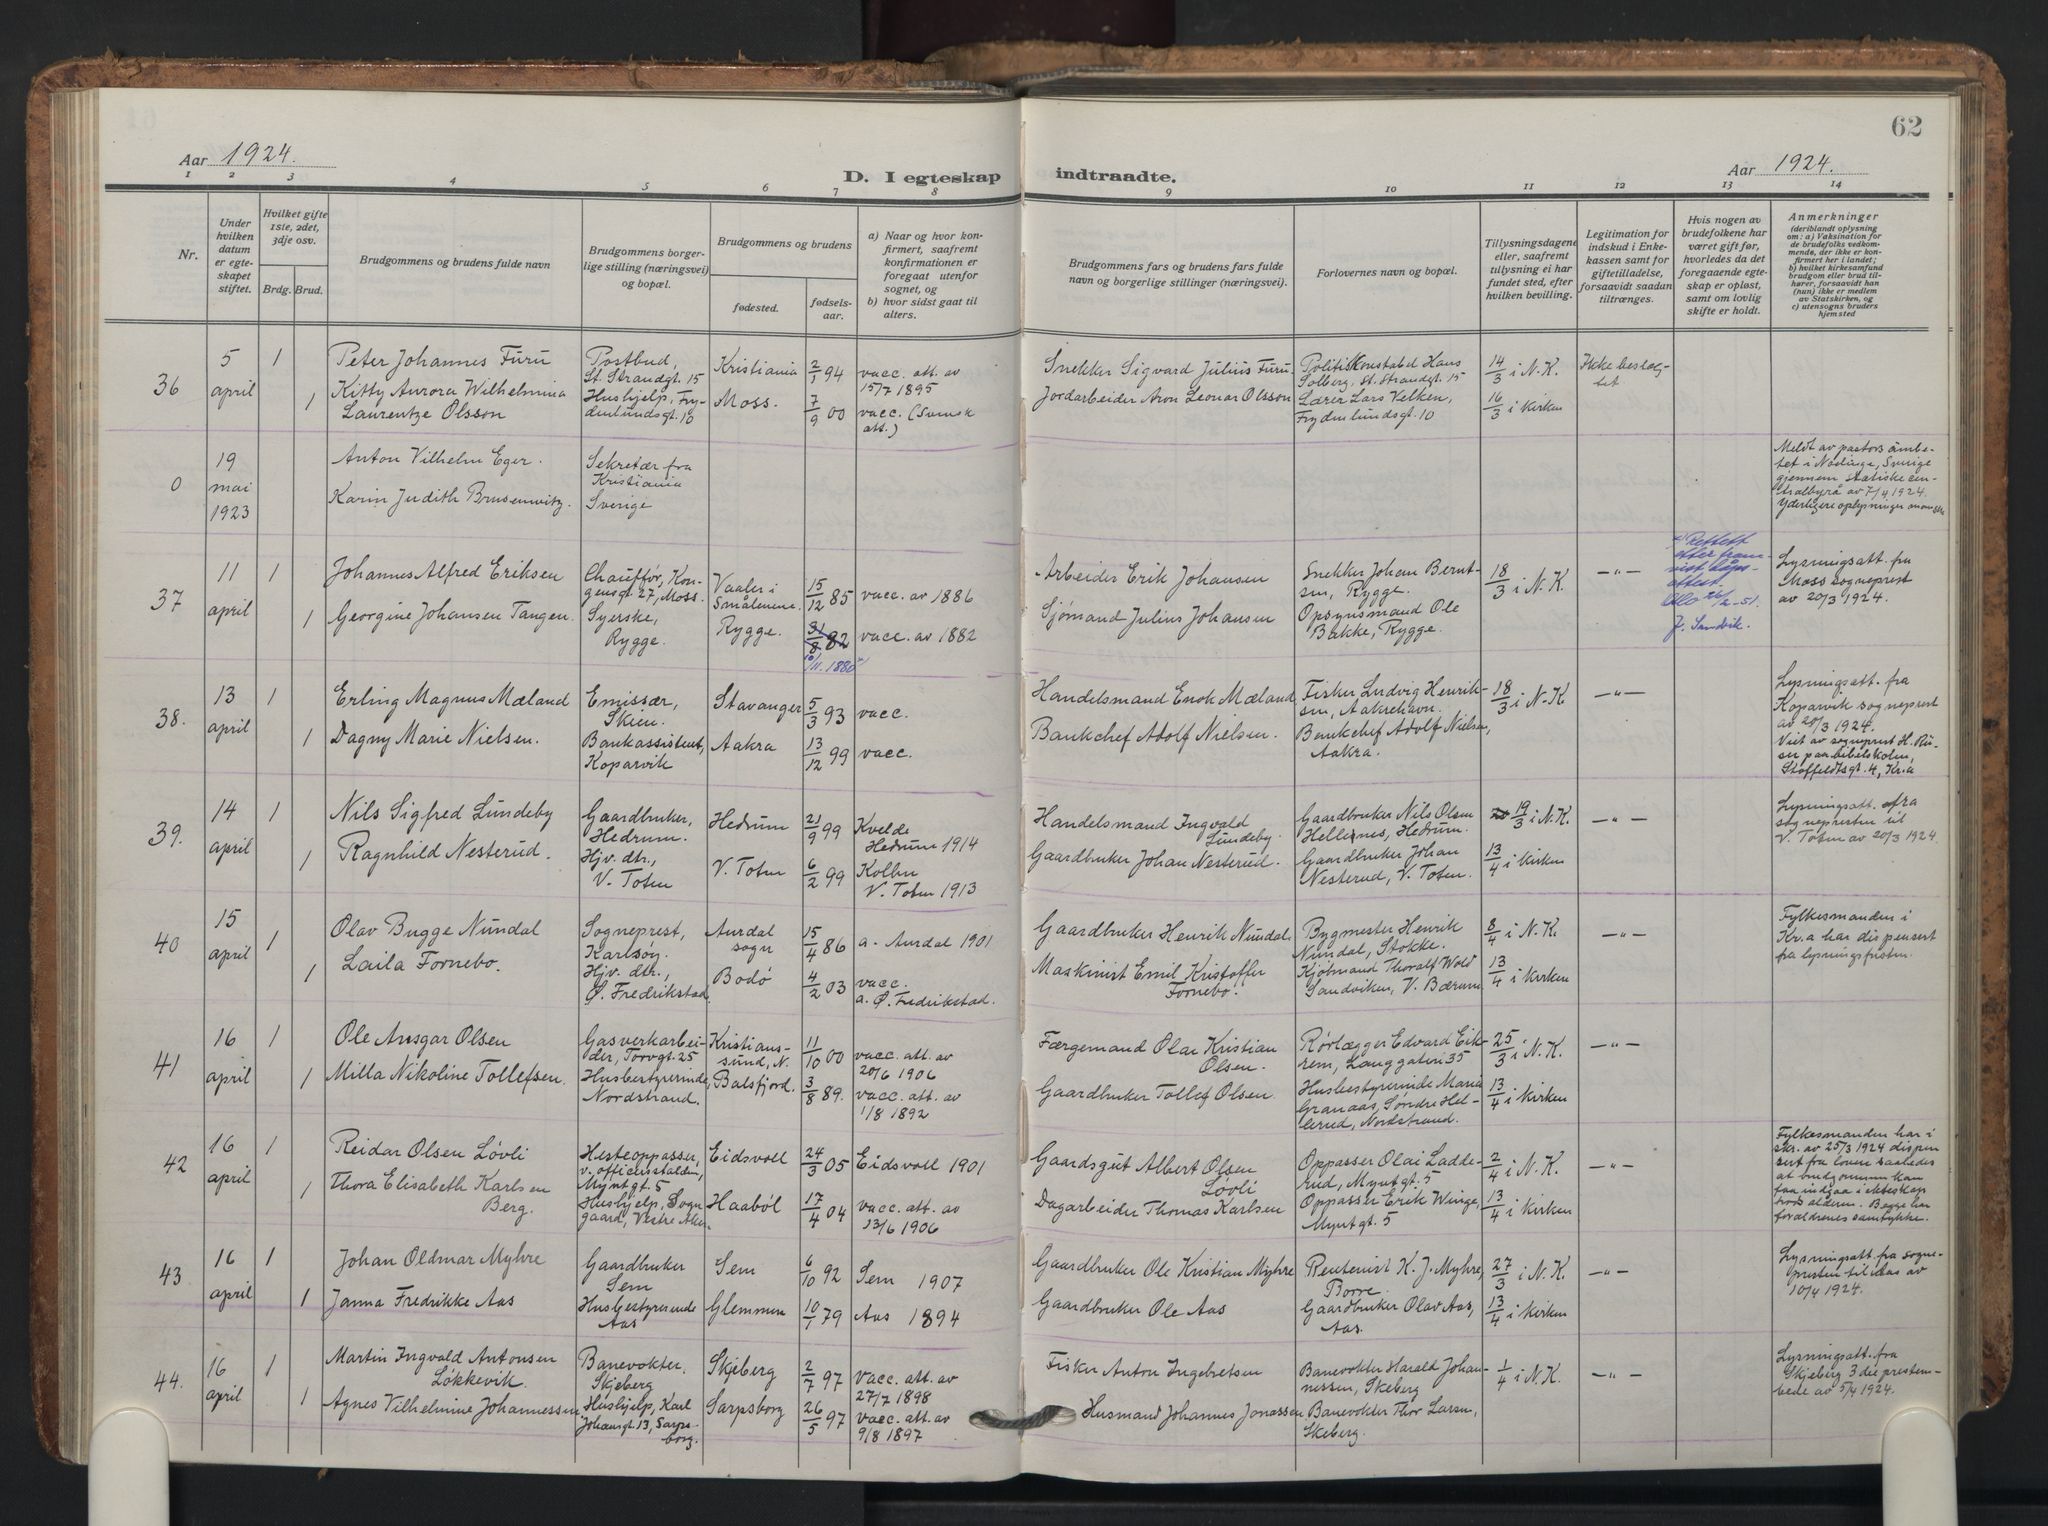 62
Aar 1924.
D. I egteskap indtraadte.
Aar 1924.
1 2 3 4 5 6 7 8 9 10 11 12 13 14
Nr.
Under hvilken datum er egteskapet stiftet.
Hvilket gifte 1ste, 2det, 3dje osv.
Brdg. Brud.
Brudgommens og brudens fulde navn
Brudgommens borgerlige stilling (næringsvei) og bopæl.
Brudgommens og brudens
fødested.
fødselsaar.
a) Naar og hvor konfirmert, saafremt konfirmationen er foregaat utenfor sognet, og
b) hvor sidst gaat til alters.
Brudgommens fars og brudens fars fulde navn og borgerlige stillinger (næringsvei).
Forlovernes navn og bopæl.
Tillysningsdagene eller, saafremt tillysning ei har fundet sted, efter hvilken bevilling.
Legitimation for indskud i Enkekassen samt for giftetilladelse, forsaavidt saadan tiltrænges.
Hvis nogen av brudefolkene har været gift før, hvorledes da det foregaaende egteskap er opløst, samt om lovlig skifte er holdt.
Anmerkninger
(deriblandt oplysning om: a) Vaksination for de brudefolks vedkommende, der ikke er konfirmert her i landet; b) hvilket kirkesamfund brudgom eller brud tilhører, forsaavidt han (hun) ikke er medlem av Statskirken, og c) utensogns bruders hjemsted
36
5 april
1
Peter Johannes Furu
Postbud, St. Strandgt. 15
Kristiania
2/1 94
vacc. att. av 15/7 1895
Snekker Sigvard Julius Furu
Politikonstabel Hans Solberg, St. Strandgt. 15
14/3 i N.K.
Ikke beslægtet
1
Kitty Aurora Wilhelmina Laurentze Olsson
Hushjelp, Frydenlundsgt. 10
Moss.
7/9 00
vacc. (Svensk att.)
Jordarbeider Aron Leonar Olsson
Lærer Lars Velken, Frydenlundsgt. 10
16/3 i Kirken
0
19 mai 1923
Anton Vilhelm Eger.
Sekretær fra Kristiania
Karin Judith Brusenwitz.
Sverige
Meldt av pastorsämbetet i Sverige gjennem statiske centralbyrå av 7/4 1924. Yderligere oplysninger
37
11 april
1
Johannes Alfred Eriksen
Chauffør, Kongensgt. 27, Moss.
Vaaler i Smålenene
15/12 85
vacc. av 1886
Arbeider Erik Johansen
Snekker Johan Berntsen, Rygge.
18/3 i N.K.
—"—
Lysningsatt. fra Moss sogneprest av 20/3 1924.
1
Georgine Johansen Tangen.
Syerske, Rygge.
Rygge.
31/8 82
10/11. 1880 x)
vacc. av 1882
Sjømand Julius Johansen
Opsynsmand Ole Bakke, Rygge.
x) Rettet efter fremvist dåpsattest. Oslo 26/2-51. J. Sandvik.
38.
13 april
1
Erling Magnus Mæland
Emissær, Skien.
Stavanger
5/3 93
vacc.
Handelsmand Enok Mæland
Fisker Ludvig Henriksen, Aakrehavn.
18/3 i N.K
—"—
Lysningsatt. fra Kopervik sogneprest av 20/3 1924. Viet av sogneprest H. paa bibelskolen, Staffeldtsgt. 4, Kr.a
1
Dagny Marie Nielsen.
Bankassistent, Kopervik
Aakra
13/12 99
vacc.
Bankchef Adolf Nielsen.
Bankchef Adolf Nielsen, Aakra.
39.
14 april
1
Nils Sigfred Lundeby
Gaardbruker, Hedrum.
Hedrum
21/9 99
Kvelde Hedrum 1914
Handelsmand Ingvald Lundeby.
Gaardbruker Nils Olsen Hellenes, Hedrum.
19/3 i N.K.
—"—
Lysningsatt. fra sognepresten til V. Toten av 20/3 1924
1
Ragnhild Nesterud.
Hjv. dtr., V. Toten
V. Toten
6/2 99
Kolbu V. Toten 1913
Gaardbruker Johan Nesterud.
Gaardbruker Johan Nesterud, V. Toten.
13/4 i Kirken
40
15 april
1
Olav Bugge Nundal
Sogneprest, Karlsöy.
Aurdal sogn
15/4 86
a. Aurdal 1901
Gaardbruker Henrik Nundal.
Bygmester Henrik Nundal, Stokke.
8/4 i N.K.
—"—
Fylkesmanden i Kr.a har dispensert fra lysningsfristen.
1
Laila Fornebo.
Hjv. dtr., Ø. Fredrikstad.
Bodö
4/2 03
vacc. a. Ø. Fredrikstad.
Maskinist Emil Kristoffer Fornebo.
Kjöbmand Thoralf Wold Sandviken, V. Bærum.
13/4 i Kirken
41
16 april
1
Ole Ansgar Olsen
Gasverkarbeider, Torvgt. 25
Kristianssund, N.
11/10 00
vacc. att. av 20/6 1906
Færgemand Olai Kristian Olsen.
Rørlægger Edvard Eikrem, Langgaten 35
25/3 i N.K.
—"—
1
Milla Nikoline Tollefsen.
Husbestyrerinde, Nordstrand.
Balsfjord.
3/8 89.
vacc. att. av 1/8 1892
Gaardbruker Tollef Olsen.
Husbestyrerinde Maria Granaas, Søndre Hellerud, Nordstrand.
13/4 i Kirken
42
16 april
1
Reidar Olsen Løvli
Hesteoppasser, v. officersstalden, Myntgt. 5
Eidsvoll
24/3 05
Eidsvoll 1901
Gaardsgut Albert Olsen Løvli
Oppasser Olai Ladderud, Myntgt. 5
2/4 i N.K.
—"—
Fylkesmanden har i skr. av 25/3 1924 dispensert fra loven saaledes at brudgommen kan faa indgaa i ekteskap alderen. Begge har forældrenes samtykke.
1
Thora Elisabeth Karlsen Berg.
Hushjelp, Sogn gaard, Vestre Aker.
Haaböl
17/4 04
vacc. att. av 13/6 1906
Dagarbeider Thomas Karlsen
Oppasser Erik Winge, Myntgt. 5
13/4 i Kirken
43
16 april
1
Johan Oldmar Myhre
Gaardbruker Sem
Sem
6/10 92
Sem 1907
Gaardbruker Ole Kristian Myhre
Rentenist K. J. Myhre, Borre.
27/3 i N.K.
—"—
Lysningsatt. fra sognepresten til Aas av 10/4 1924.
1
Janna Fredrikke Aas
Husbestyrerinde Aas
Glemmen
10/1 79
Aas 1894
Gaardbruker Ole Aas
Gaardbruker Olav Aas, Aas.
13/4 i Kirken
44.
16 april
1
Martin Ingvald Antonsen Løkkevik.
Banevokter. Skjeberg
Skjeberg
2/7 97
vacc. att. av 27/7 1898
Fisker Anton Ingebretsen
Banevokter Harald Johannessen, Skeberg
1/4 i N.K.
—"—
Lysningsatt. fra Skjeberg 3die prestembede av 5/4 1924.
1
Agnes Vilhelmine Johannessen
Hushjelp, Karl Johansgt. 13, Sarpsborg.
Sarpsborg
26/5 97
vacc. att. av 9/8 1897
Husmand Johannes Jonassen
Banevokter Thor Larsen, Skeberg.